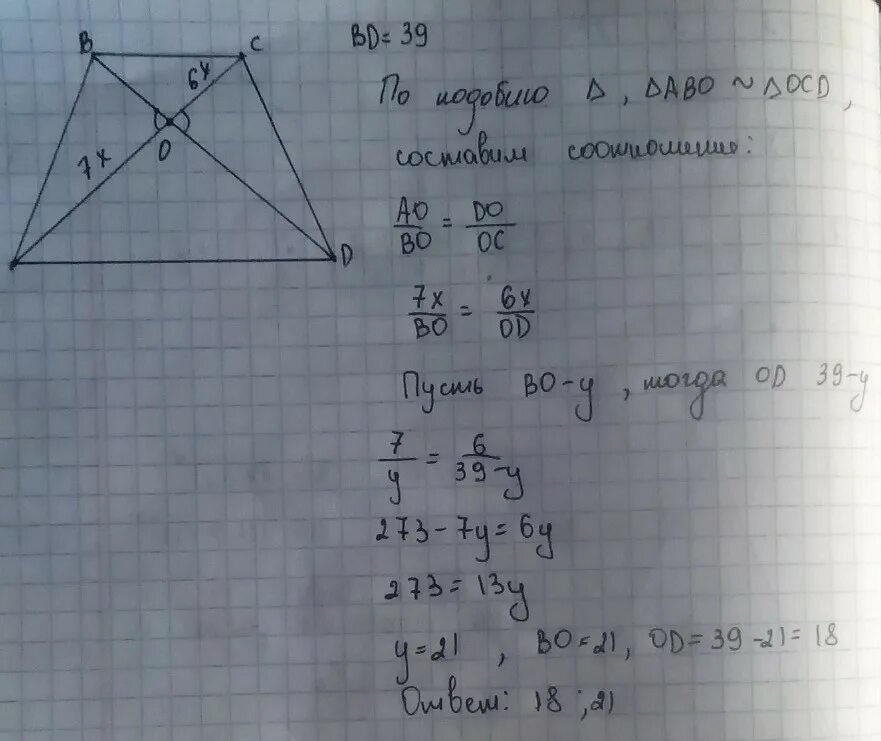 B
C
6x
7x
O
D
BD = 39
По подобию Δ, ΔABO ~ ΔOCD,
составим соотношение:
AO/BO = DO/OC
7x/BO = 6x/OD
Пусть BO-y, тогда OD 39-y
7/y = 6/39-y
273-7y=6y
273=13y
y=21, BO=21, OD=39-21=18
Ответ: 18; 21